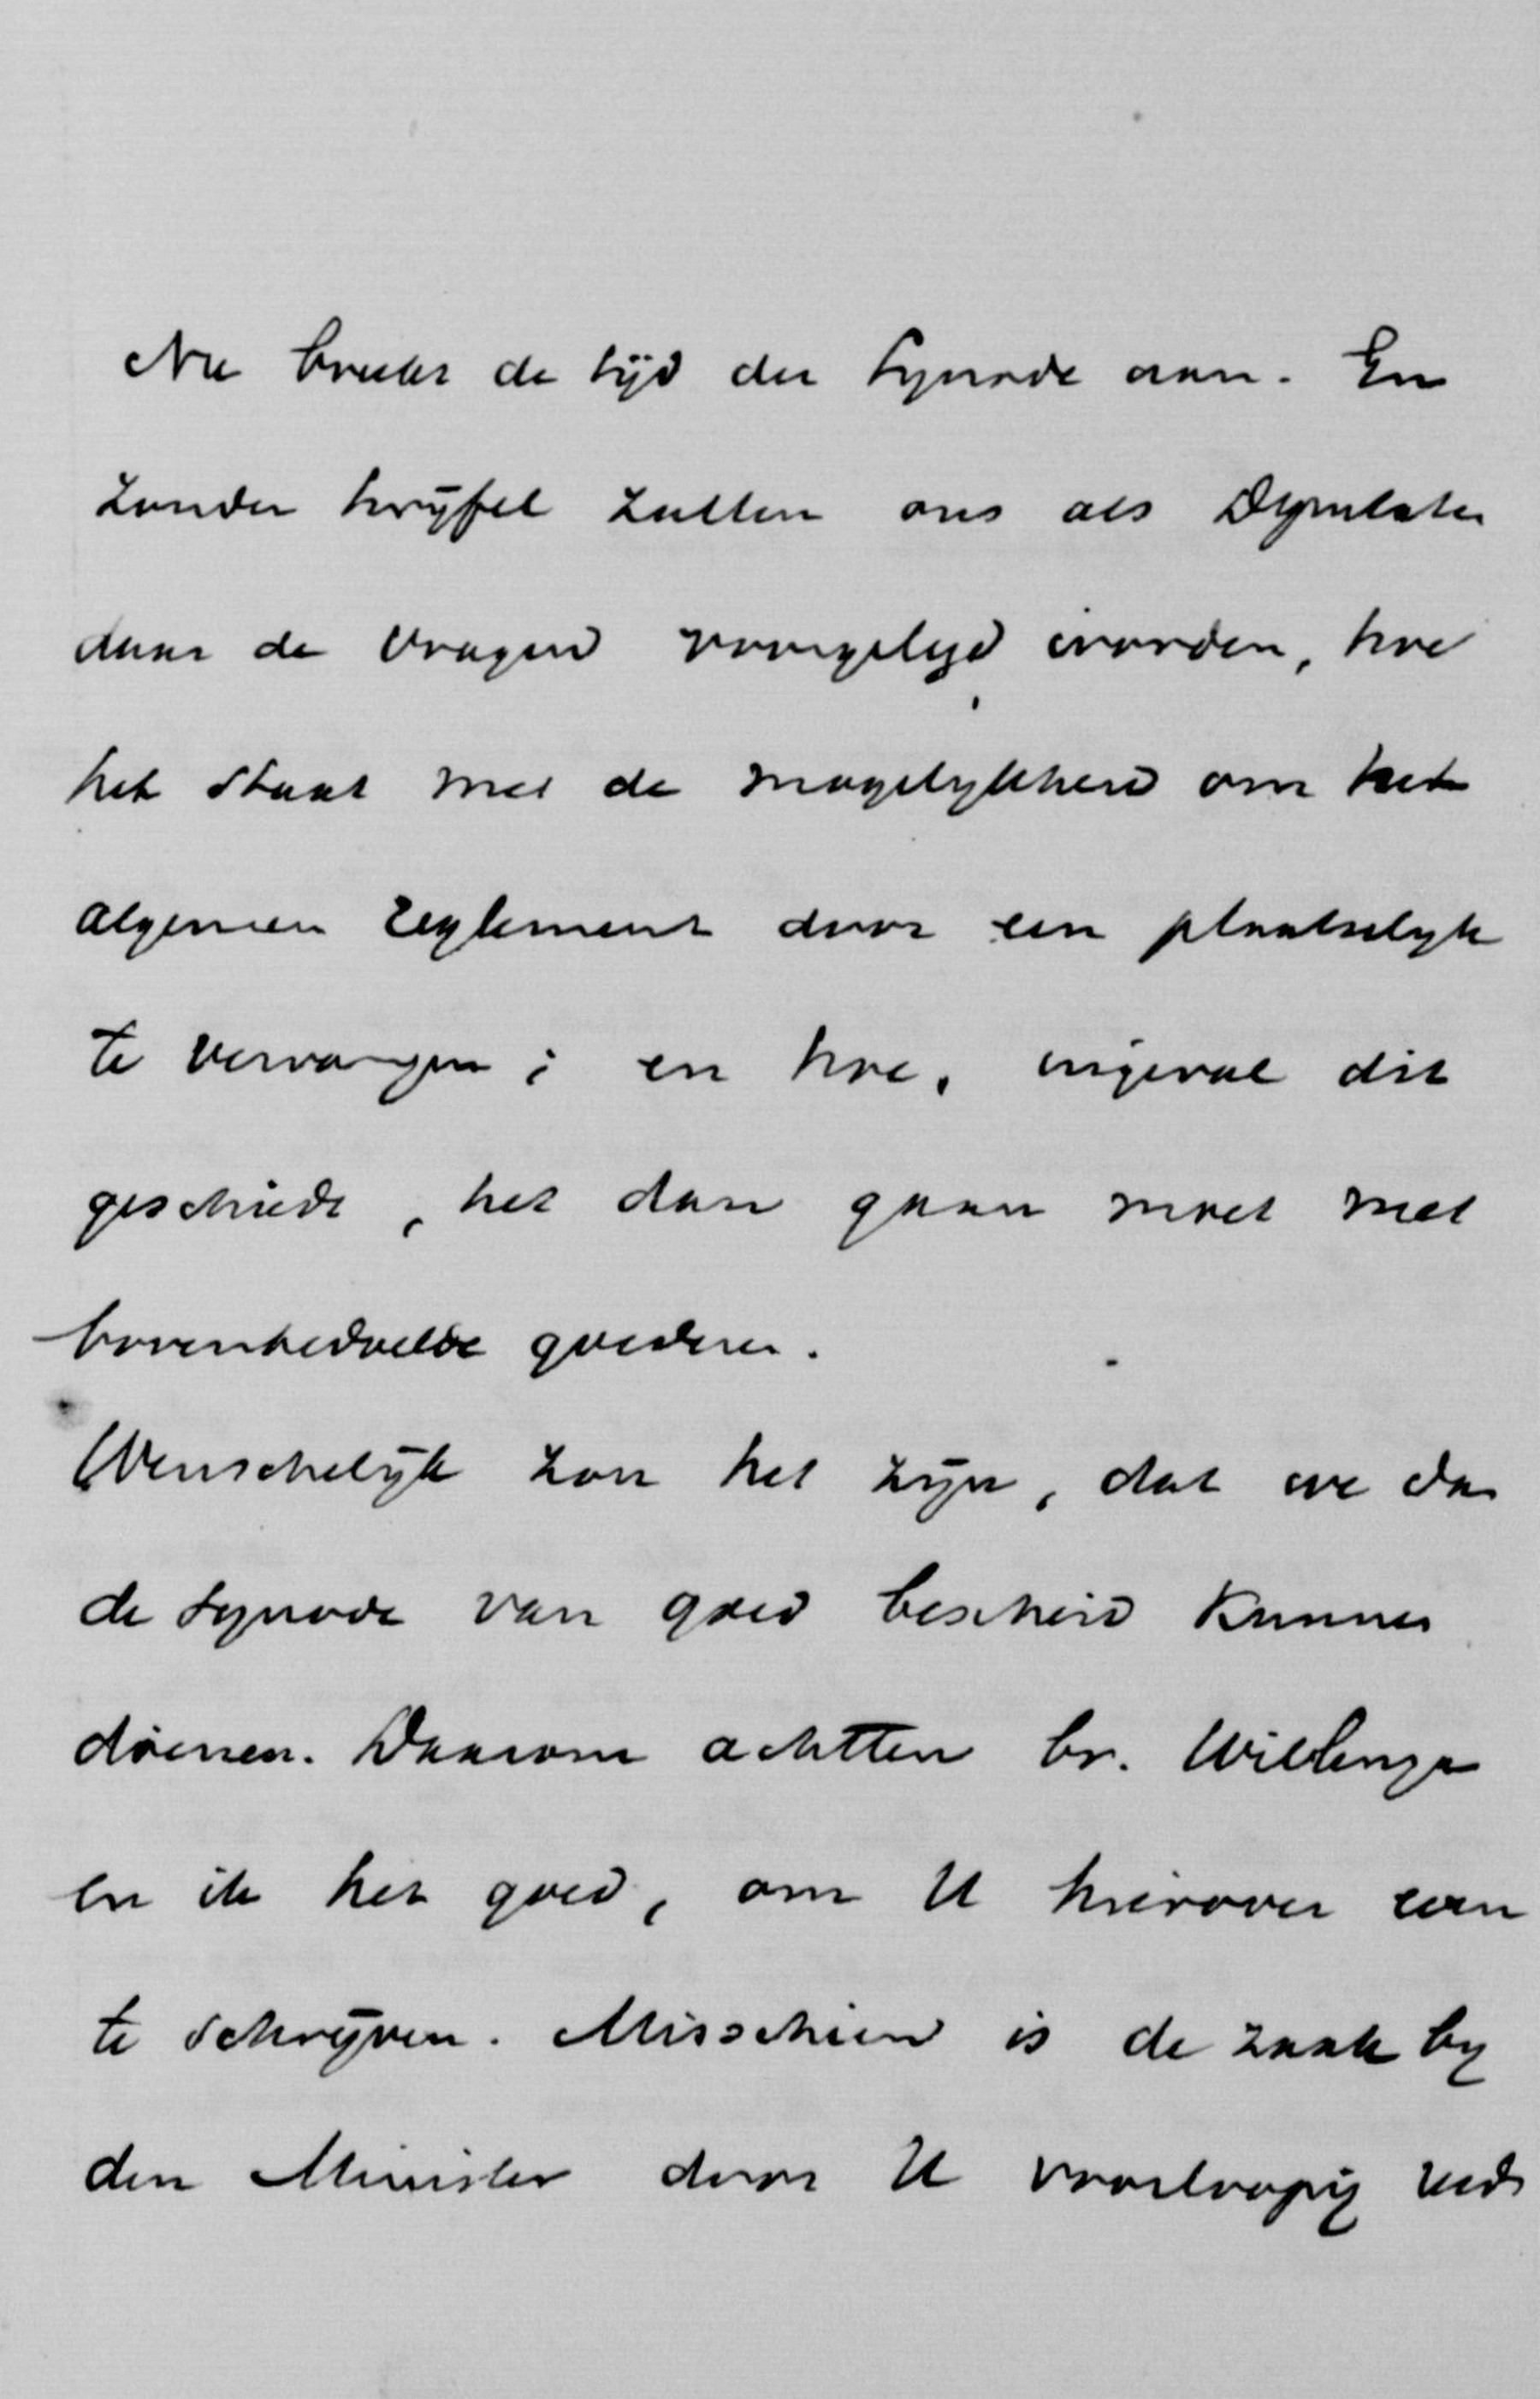 Nu breekt de tijd der Synode aan. En
zonder twijfel zullen ons als Deputaten
daar de vragen voorgelegd worden, hoe
het staat met de mogelijkheid om het
algemeen reglement door een plaatselijk
te vervangen; en hoe, ingeval dit
geschiede, het dan gaan moet met
bovenbedoelde goederen.
Wenschelijk zou het zijn, dat we dan
de Synode van goed bescheid kunnen
dienen. Daarom achtten br. Wielenga
en ik het goed, om U hierover even
te schrijven. Misschien is de zaak bij
den Minister door U voorloopig reeds